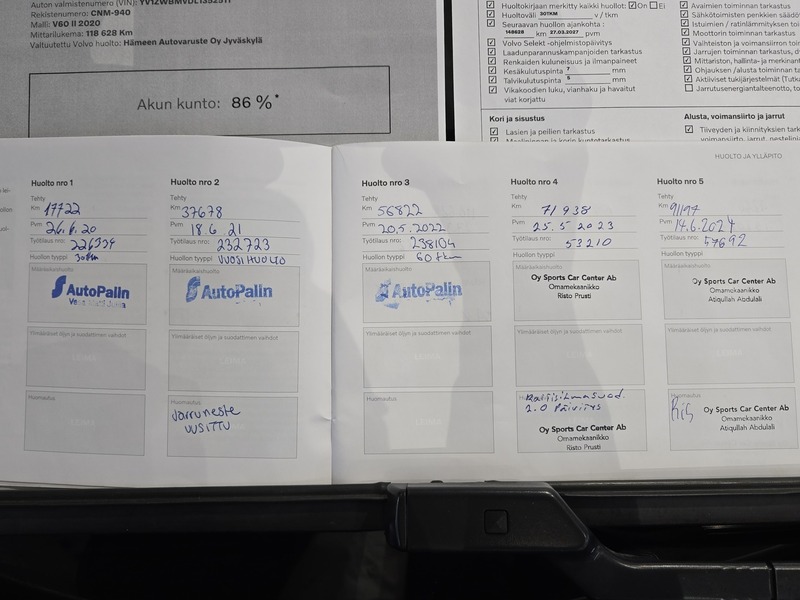 Auton valmistenumero (VIN):
Rekisterinumero: CNM-940
Malli: V60 II 2020
Mittarilukema: 118 628 Km
Valtuutettu Volvo huolto: Hämeen Autovaruste Oy Jyväskylä
Akun kunto: 86 %*
Huoltokirjaan merkitty kaikki huollot: On Ei
Huoltoväli 30TKM v / tkm
Seuraavan huollon ajankohta :
148628 km 27.03.2027 pvm
Volvo Selekt -ohjelmistopäivitys
Laadunparannuskampanjoiden tarkastus
Renkaiden kuluneisuus ja ilmanpaineet
Kesäkulutuspinta 7 mm
Talvikulutuspinta 5 mm
Vikakoodien luku, vianhaku ja havaitut
viat korjattu
Avalmien toiminnan tarkastus
Sähkötoimisten penkkien säädön
Istuimien / ratinlämmityksen toim
Moottorin toiminnan tarkastus
Vaihteiston ja voimansiirron toim
Jarrujen toiminnan tarkastus,
Mittariston, hallinta- ja merkinan
Ohjauksen /alusta toiminnan tar
Aktiiviset tukijärjestelmät (Tutka
Jarrutusenergiantalteenotto, to
Kori ja sisustus
Lasien ja peilien tarkastus
Alusta, voimansiirto ja jarrut
Tiiveyden ja kiinnityksien tark
HUOLTO JA YLLÄPITO
Huolto nro 1
Tehty
Km 17722
Pvm 26.6.20
Työtilaus nro: 226324
Huollon tyyppi 30tkm
Määräaikaishuolto
AutoPalin
Ylimääräiset öljyn ja suodattimen vaihdot
Huomautus
Huolto nro 2
Tehty
Km 37678
Pvm 18.6.21
Työtilaus nro: 232723
Huollon tyyppi VUOSIHUOLTO
Määräaikaishuolto
AutoPalin
Ylimääräiset öljyn ja suodattimen vaihdot
Huomautus
Jarruneste
UUSITTU
Huolto nro 3
Tehty
Km 56822
Pvm 20.5.2022
Työtilaus nro: 238104
Huollon tyyppi 60 tkm
Määräaikaishuolto
AutoPalin
Ylimääräiset öljyn ja suodattimen vaihdot
Huomautus
Huolto nro 4
Tehty
Km 71 938
Pvm 25.5 2023
Työtilaus nro: 53210
Huollon tyyppi
Määräaikaishuolto
Oy Sports Car Center Ab
Omamekaanikko
Risto Prusti
Ylimääräiset öljyn ja suodattimen vaihdot
2.0 Päivitys
Oy Sports Car Center Ab
Omamekaanikko
Risto Prusti
Huolto nro 5
Tehty
Km 91197
Pvm 14.6.2024
Työtilaus nro: 57692
Huollon tyyppi
Määräaikaishuolto
Oy Sports Car Center Ab
Omamekaanikko
Atiqullah Abdulali
Ylimääräiset öljyn ja suodattimen vaihdot
Huomautus
Oy Sports Car Center Ab
Omamekaanikko
Atiqullah Abdulali